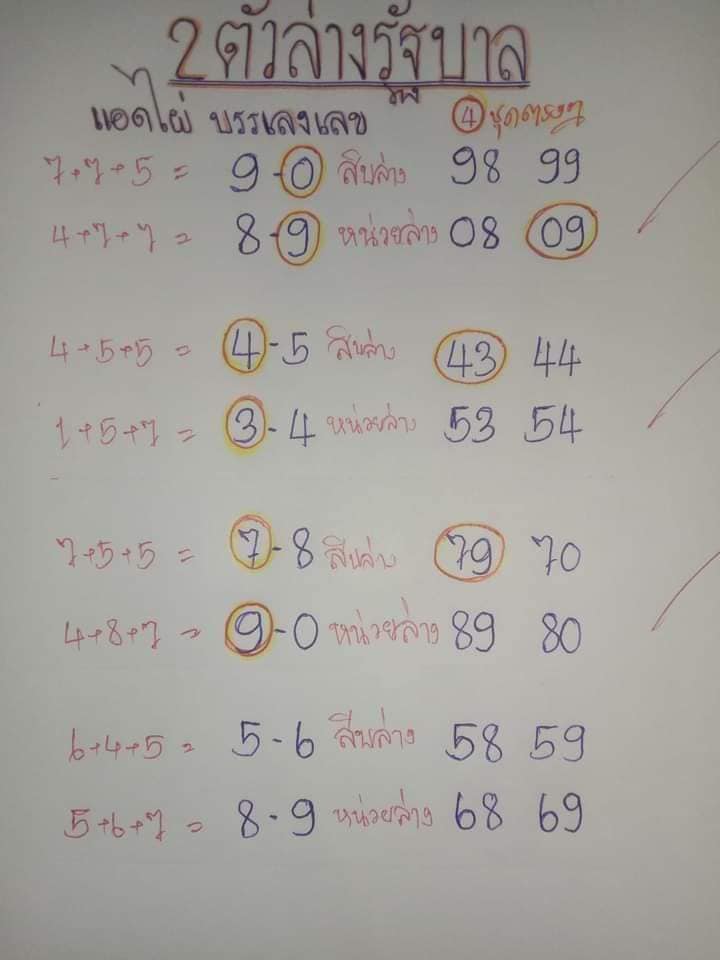 2ตัวล่างรัฐบาล
แอดไผ่ บรรเลงเลข ④ ชุดตรงๆ
7+7+5 = 9-0 สิบล่าง 98 99
4+7+7 = 8-9 หน่วยล่าง 08 09
4+5+5 = 4-5 สิบล่าง 43 44
1+5+7 = 3-4 หน่วยล่าง 53 54
7+5+5 = 7-8 สิบล่าง 79 70
4+8+7 = 9-0 หน่วยล่าง 89 80
6+4+5 = 5-6 สิบล่าง 58 59
5+6+7 = 8-9 หน่วยล่าง 68 69